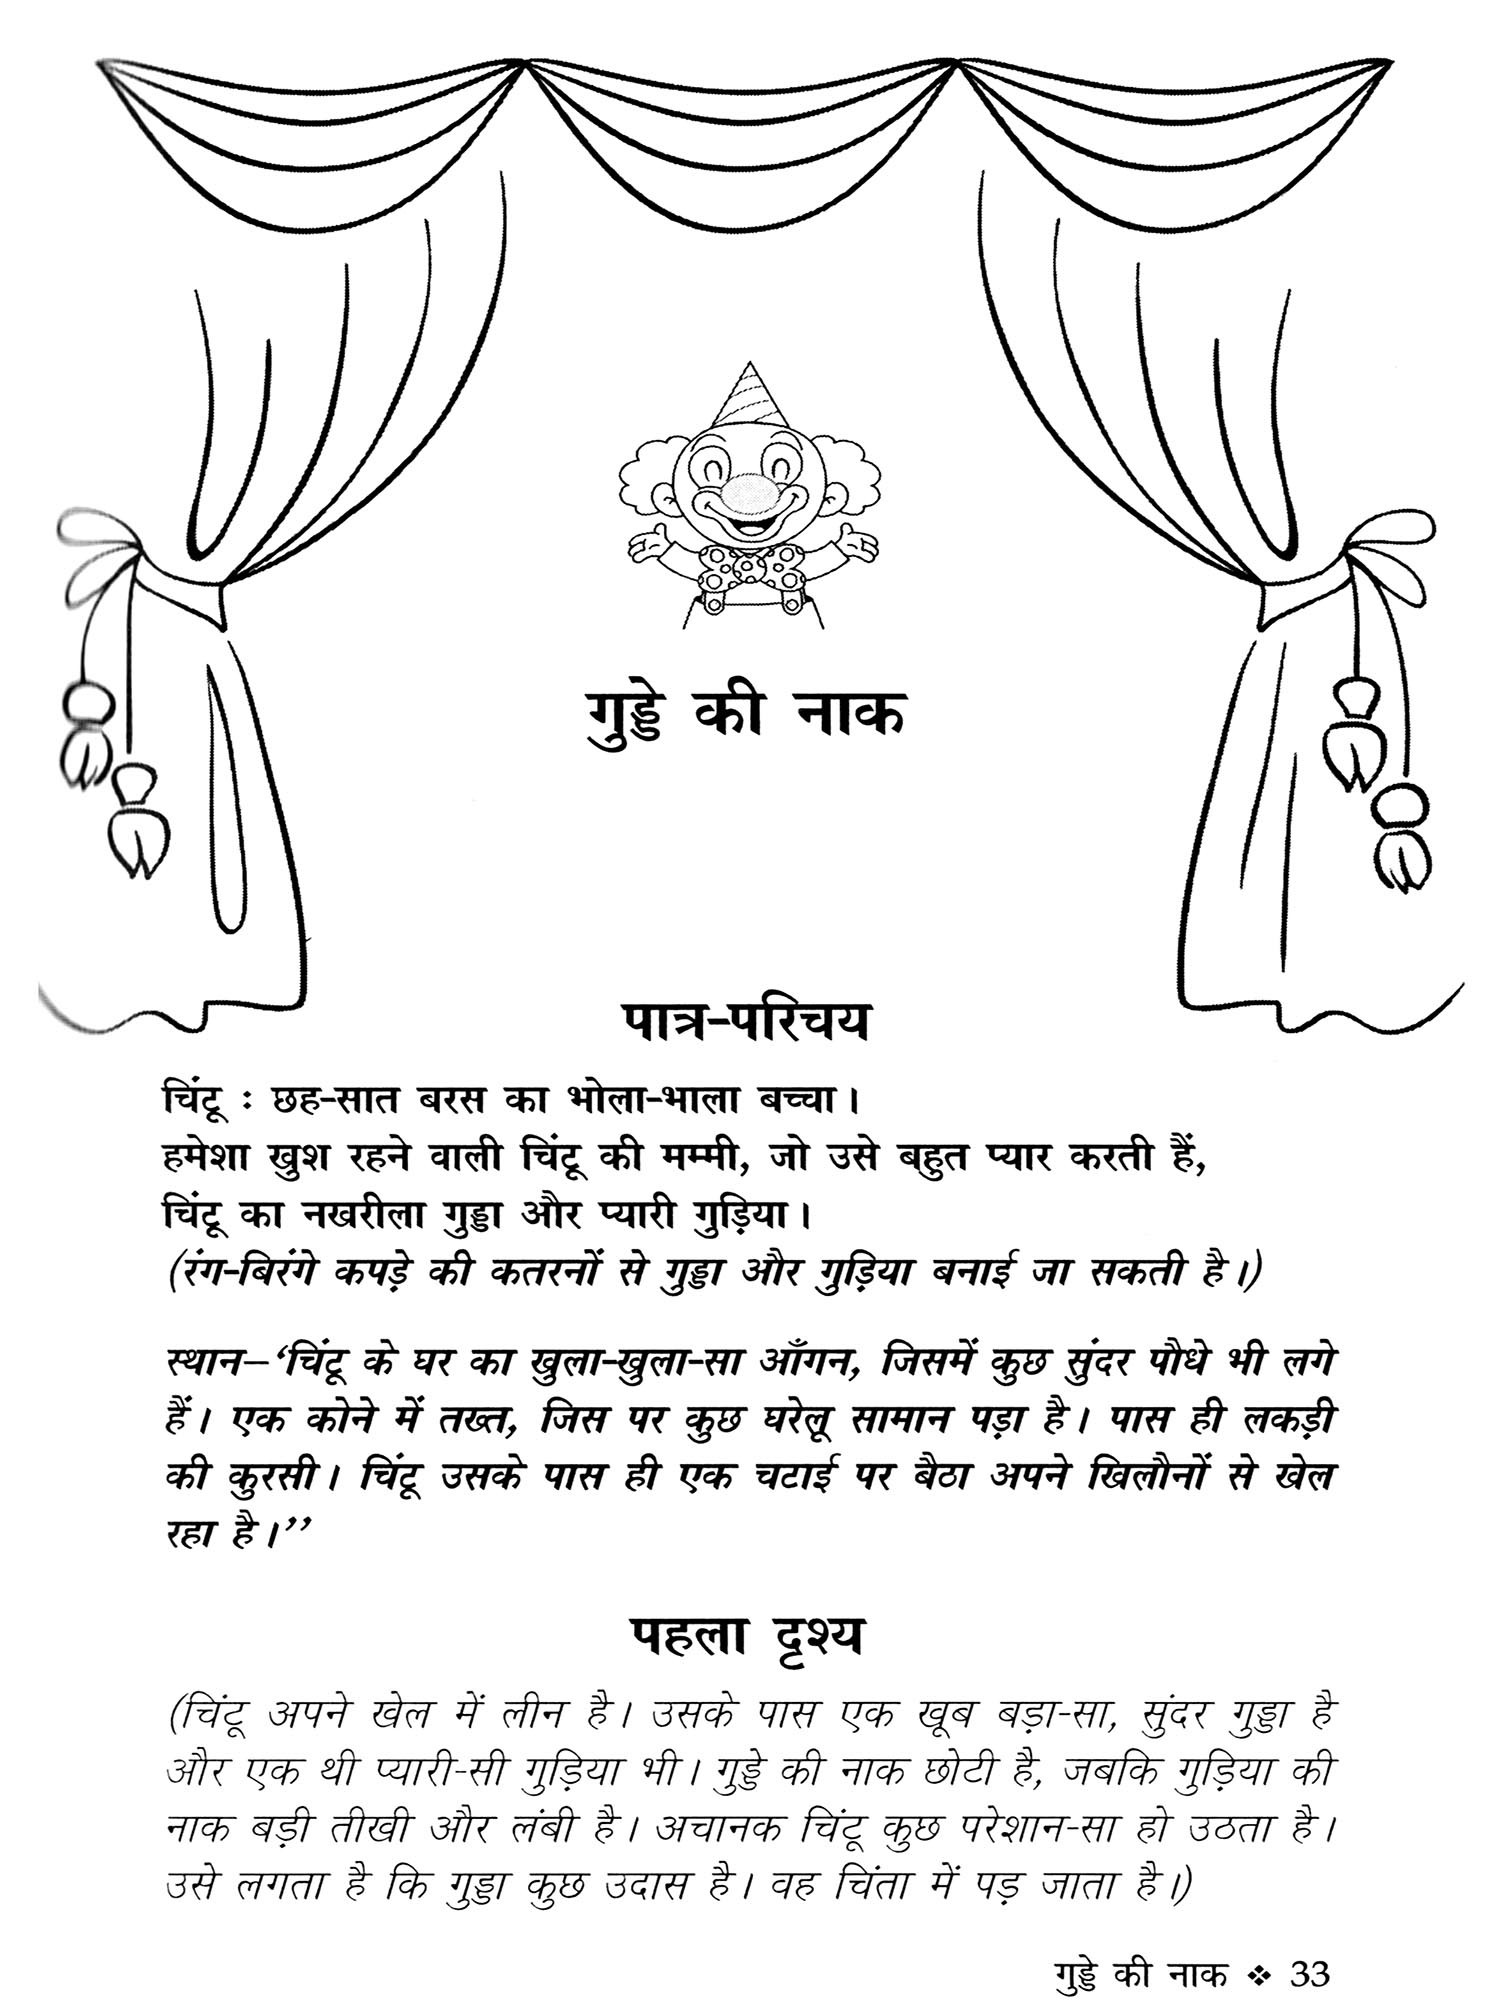 गुड्डे की नाक
पात्र-परिचय
चिंटू : छह-सात बरस का भोला-भाला बच्चा।
हमेशा खुश रहने वाली चिंटू की मम्मी, जो उसे बहुत प्यार करती हैं,
चिंटू का नखरीला गुड्डा और प्यारी गुड़िया।
(रंग-बिरंगे कपड़े की कतरनों से गुड्डा और गुड़िया बनाई जा सकती है।)
स्थान–‘चिंटू के घर का खुला-खुला-सा आँगन, जिसमें कुछ सुंदर पौधे भी लगे
हैं। एक कोने में तख्त, जिस पर कुछ घरेलू सामान पड़ा है। पास ही लकड़ी
की कुरसी। चिंटू उसके पास ही एक चटाई पर बैठा अपने खिलौनों से खेल
रहा है।’’
पहला दृश्य
(चिंटू अपने खेल में लीन है। उसके पास एक खूब बड़ा-सा, सुंदर गुड्डा है
और एक थी प्यारी-सी गुड़िया भी। गुड्डे की नाक छोटी है, जबकि गुड़िया की
नाक बड़ी तीखी और लंबी है। अचानक चिंटू कुछ परेशान-सा हो उठता है।
उसे लगता है कि गुड्डा कुछ उदास है। वह चिंता में पड़ जाता है।)
गुड्डे की नाक ❖ 33